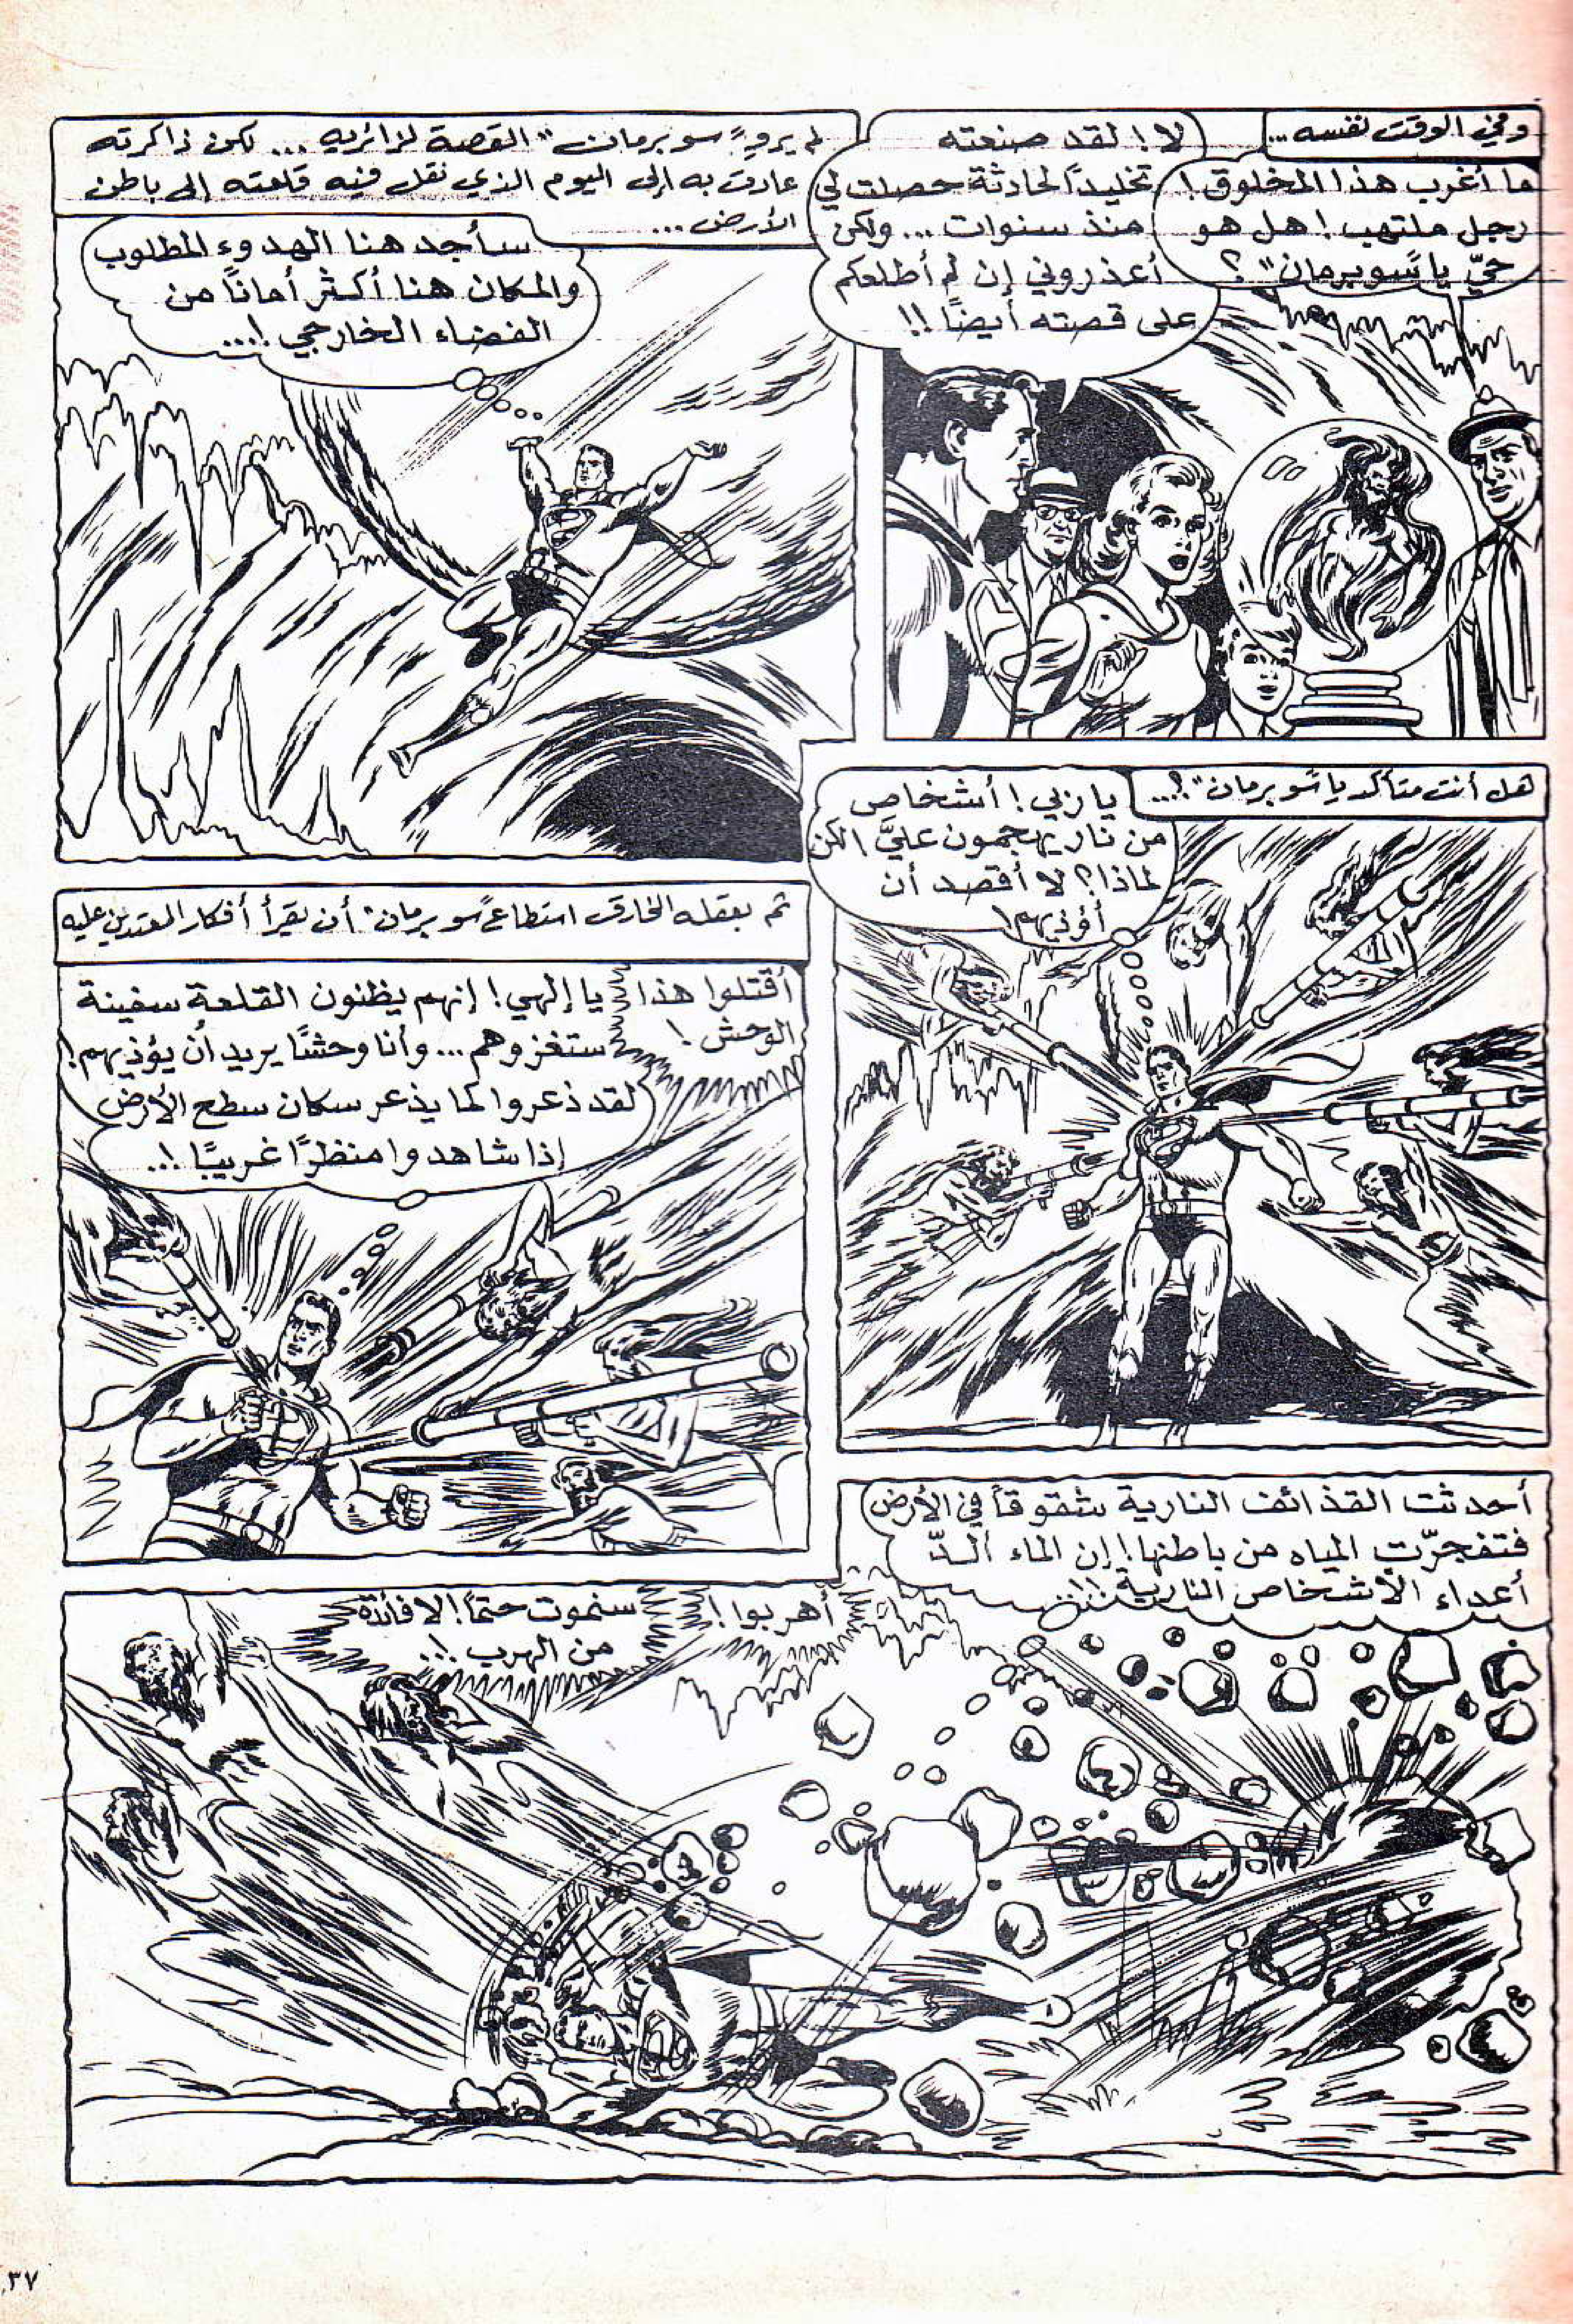 وفي الوقت نفسه...
ما أغرب هذا المخلوق!
رجل ملتهب! هل هو
حيّ يا "سوبرمان"؟
لا! لقد صنعته
تخليداً لحادثة حصلت لي
منذ سنوات... ولكن
أعذروني إن لم أطلعكم
على قصته أيضاً!!
لم يروِ "سوبرمان" القصة لزائريه... لكن ذاكرته
عادت به إلى اليوم الذي نقل فيه قلعته إلى باطن
الأرض...
سأجد هنا الهدوء المطلوب
والمكان هنا أكثر أماناً من
الفضاء الخارجي!...
هل أنت متأكد يا "سوبرمان"؟...
يا ربي! أشخاص
من نار يهجمون عليَّ! لكن
لماذا؟ لا أقصد أن
أؤذيهم!
ثم بعقله الخارق استطاع "سوبرمان" أن يقرأ أفكار المعتدين عليه
أقتلوا هذا
الوحش!
يا إلهي! إنهم يظنون القلعة سفينة
ستغزوهم... وأنا وحشًا يريد أن يؤذيهم!
لقد ذعروا كما يذعر سكان سطح الأرض
إذا شاهدوا منظرًا غريبًا!..
أحدثت القذائف النارية شقوقاً في الأرض
فتفجرّت المياه من باطنها! إن الماء ألدّ
أعداء الأشخاص النارية!!...
أهربوا!
سنموت حتماً! لا فائدة
من الهرب!..
٣٧